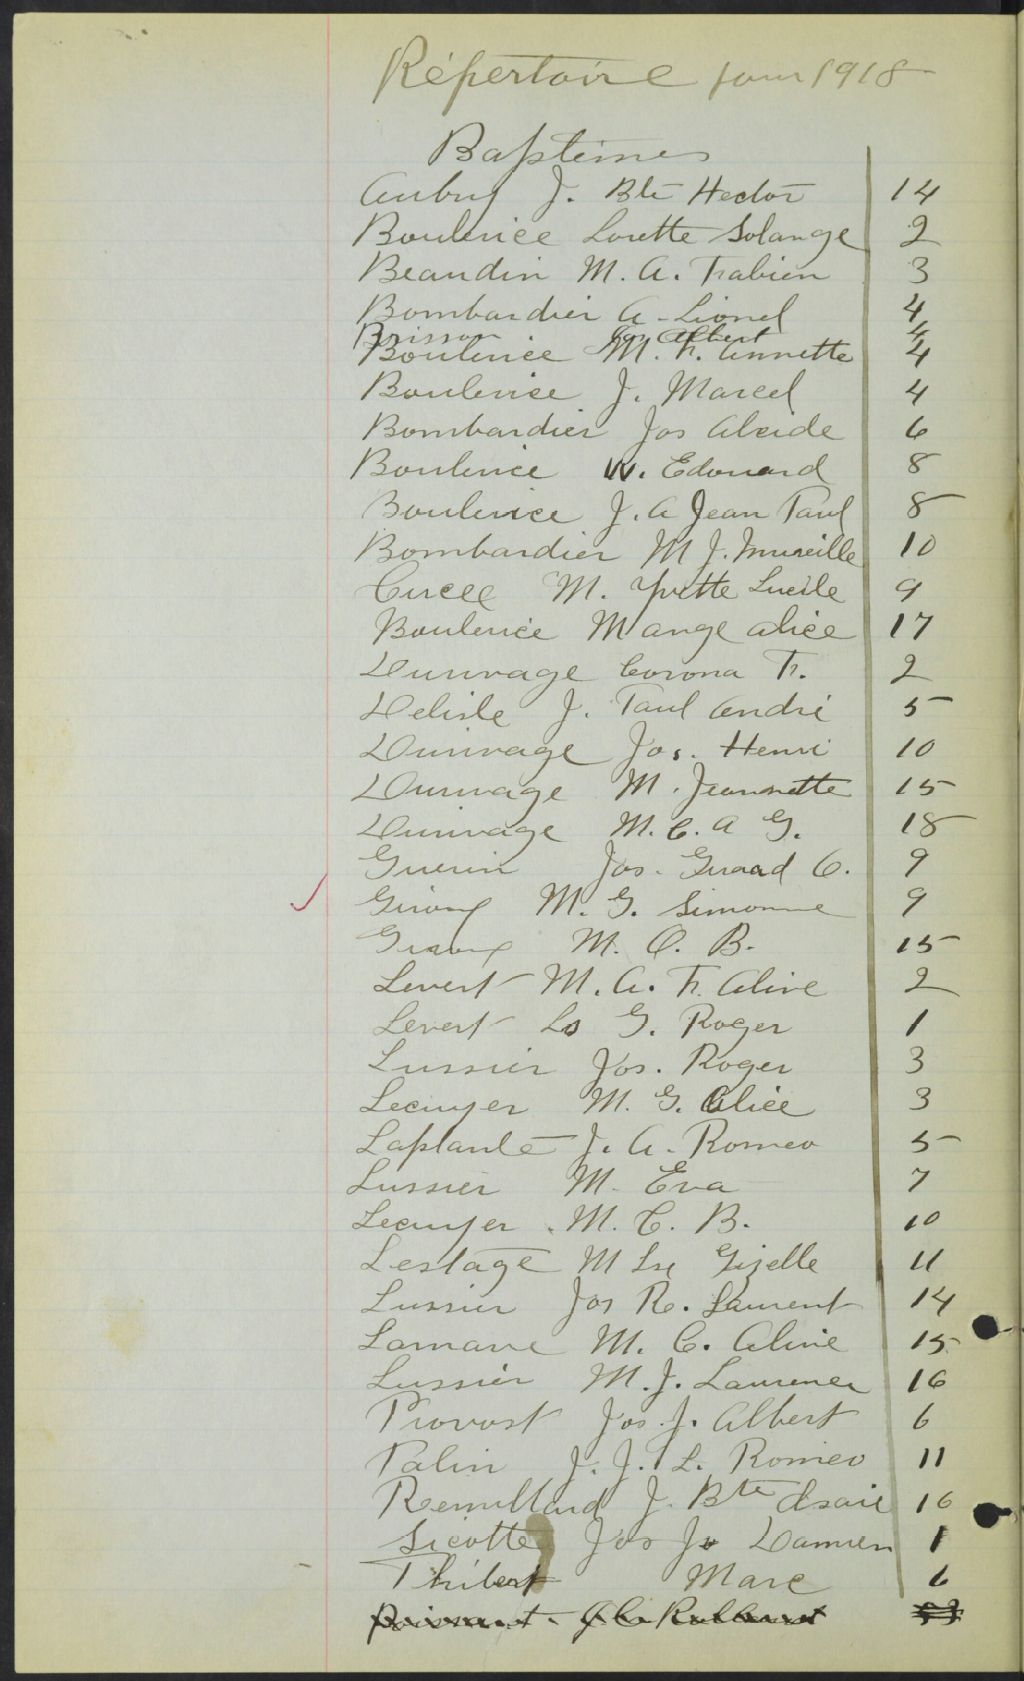 Répertoire pour 1918
Baptêmes
Aubry J. Bte Hector 14
Boulerice Lorette Solange 2
Beaudin M. A. Fabien 3
Bombardier A. Lionel 4
Brisson Jos Albert 4
Boulerice M. F. Annette 4
Boulerice J. Marcel 4
Bombardier Jos Alcide 6
Boulerice W. Edouard 8
Boulerice J. A Jean Paul 8
Bombardier M J. Mureille 10
Circee M. Yvette Lucile 9
Boulerice M ange alice 17
Durivage Corona Fr. 2
Delisle J. Paul André 5
Durivage Jos. Henri 10
Durivage M. Jeannette 15
Durivage M. C. A G. 18
Guerin Jos. Gerard O. 9
Giroux M. G. Simonne 9
Giroux M. O. B. 15
Levert M. A. F. Aline 2
Levert Ls G. Roger 1
Lussier Jos. Roger 3
Lecuyer M. G. Alice 3
Laplante J. A. Romeo 5
Lussier M. Eva 7
Lecuyer M. C. B. 10
Lestage M Lse Gizelle 11
Lussier Jos R. Laurent 14
Lamarre M. C. Aline 15
Lussier M. J. Laurence 16
Provost Jos. J. Albert 6
Palin J. J. L. Romeo 11
Remillard J. Bte Isaie 16
Sicotte Jos Jo Damien 1
Thibert Marc 6